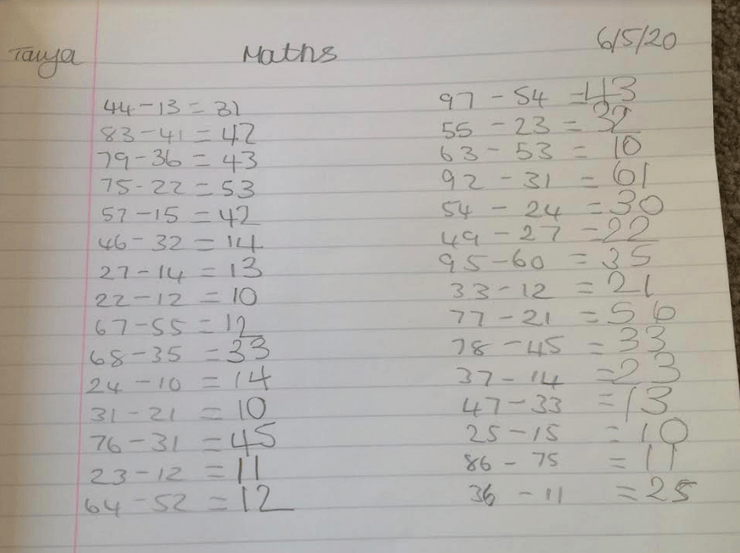 Tanya
Maths
6/5/20
44-13 = 31
83-41 = 42
79-36 = 43
75-22 = 53
57-15 = 42
46-32 = 14
27-14 = 13
22-12 = 10
67-55 = 12
68-35 = 33
24-10 = 14
31-21 = 10
76-31 = 45
23-12 = 11
64-52 = 12
97-54 = 43
55-23 = 32
63-53 = 10
92-31 = 61
54-24 = 30
49-27 = 22
95-60 = 35
33-12 = 21
77-21 = 56
78-45 = 33
37-14 = 23
47-33 = 13
25-15 = 10
86-75 = 11
36-11 = 25